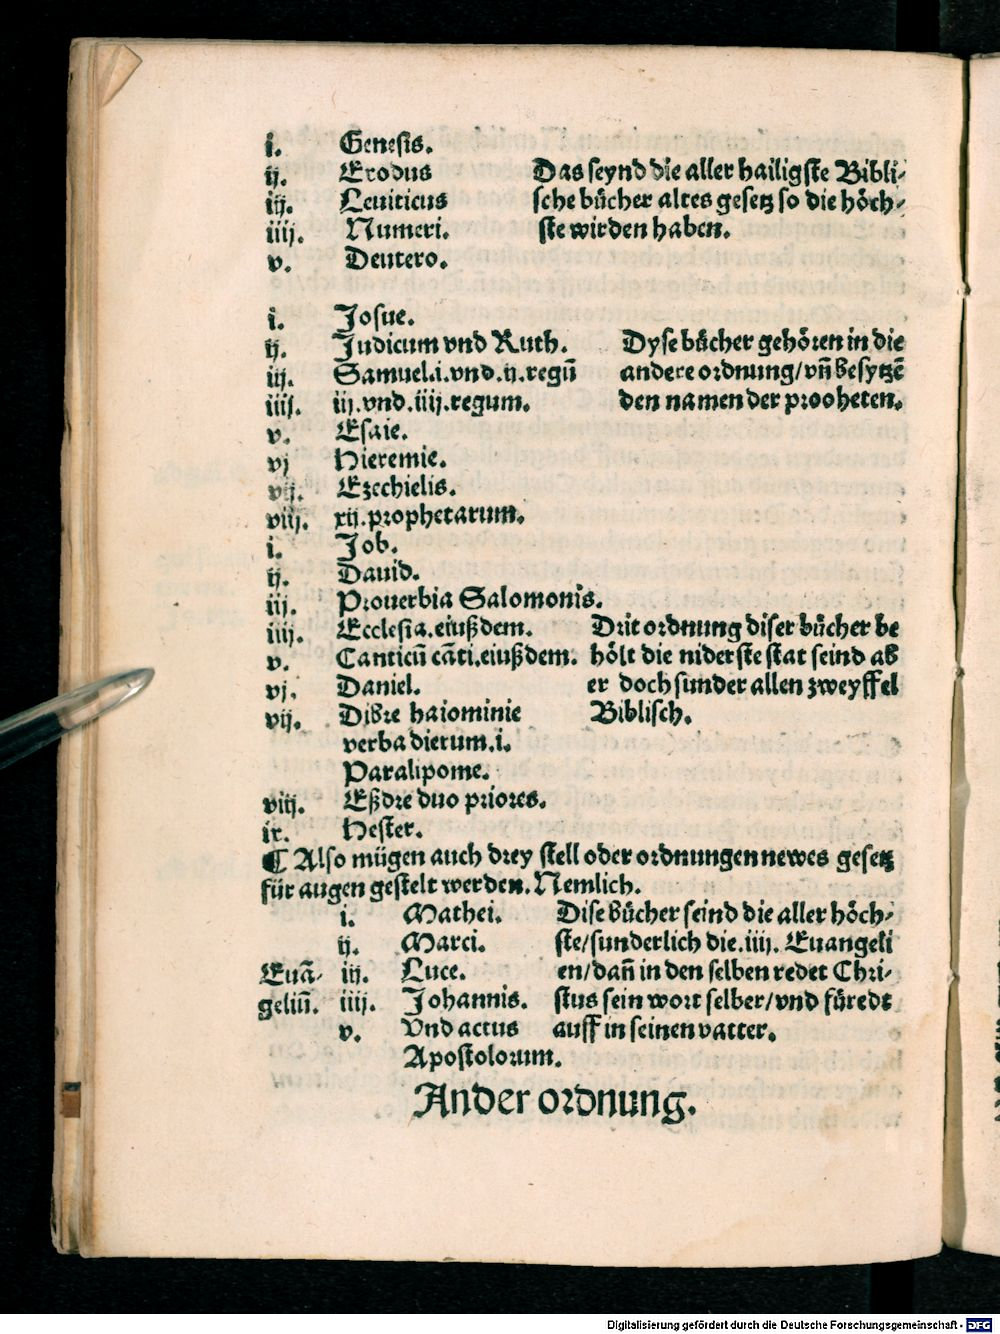 i. Genesis.
ij. Exodus Das seynd die aller hailigste Bibli-
iij. Leuiticus sche bücher altes gesetz so die höch-
iiij. Numeri. ste wirden haben.
v. Deutero.
i. Josue.
ij. Judicum vnd Ruth. Dyse bücher gehören in die
iij. Samuel.i.vnd.ij.regū andere ordnung/vn̄ besytzē
iiij. iij.vnd.iiij.regum. den namen der prooheten.
v. Esaie.
vj Hieremie.
vij. Ezechielis.
viij. xij.prophetarum.
i. Job.
ij. Dauid.
iij. Prouerbia Salomonis.
iiij. Ecclesia.eiußdem. Drit ordnung diser bücher be
v. Canticū cāti.eiußdem. hölt die niderste stat seind ab
vj. Daniel. er doch sunder allen zweyffel
vij. Dibre haiominie Biblisch.
verba dierum.i.
Paralipome.
viij. Eßdre duo priores.
ix. Hester.
¶ Also mügen auch drey stell oder ordnungen newes gesetz
für augen gestelt werden. Nemlich.
i. Mathei. Dise bücher seind die aller höch-
ij. Marci. ste/sunderlich die.iiij. Euangeli
Euā- iij. Luce. en/dan̄ in den selben redet Chri-
geliū. iiij. Johannis. stus sein wort selber/vnd füredt
v. Vnd actus auff in seinen vatter.
Apostolorum.
Ander ordnung.
Digitalisierung gefördert durch die Deutsche Forschungsgemeinschaft - DFG